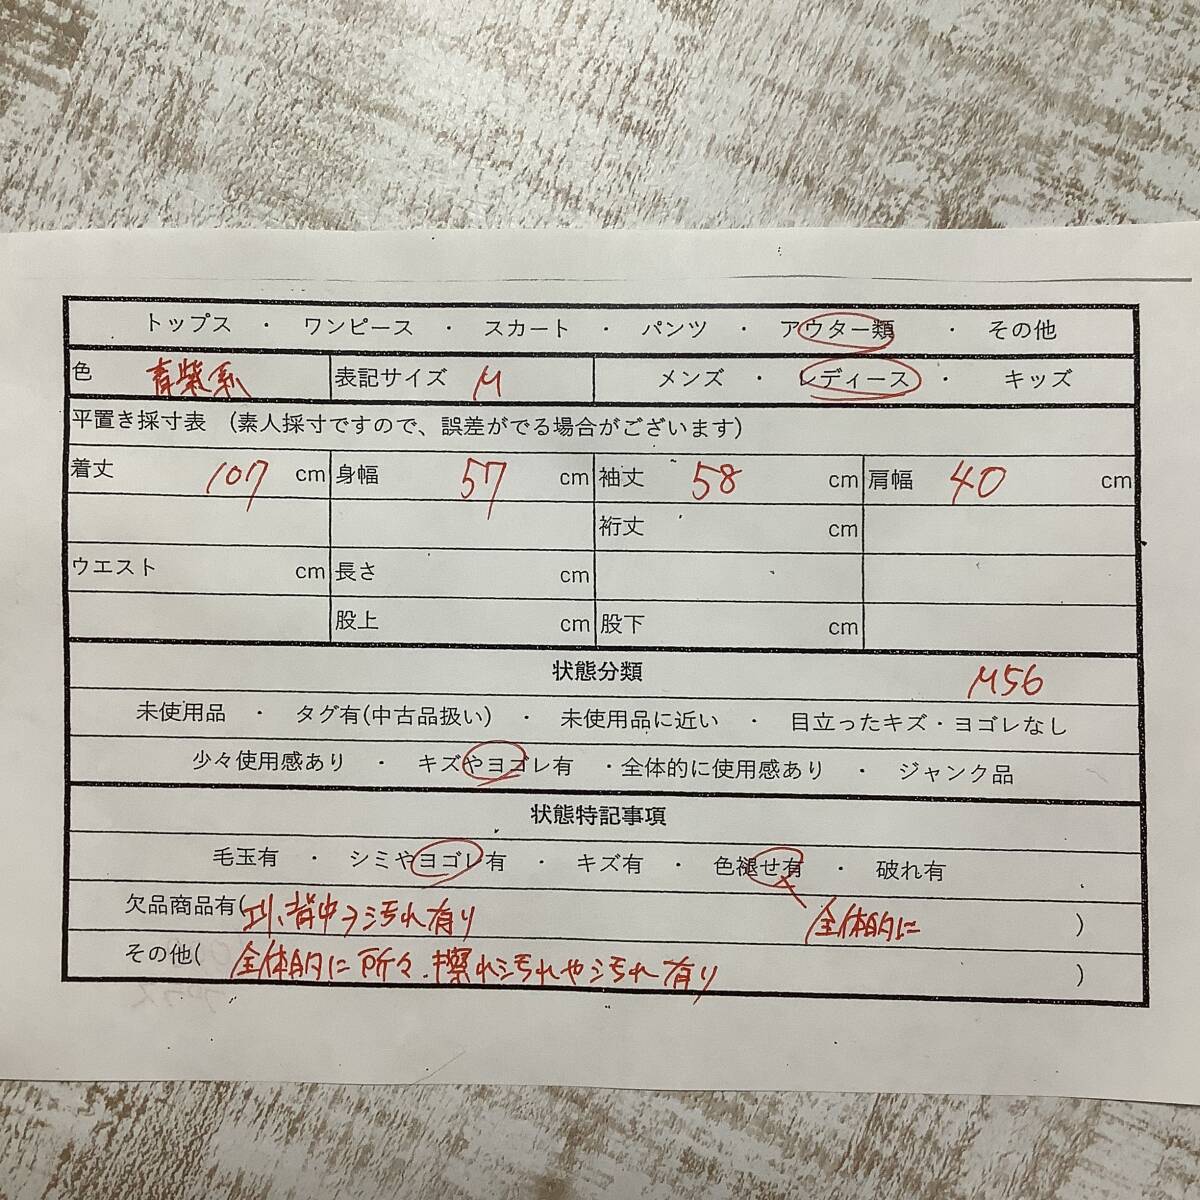 トップス ・ ワンピース ・ スカート ・ パンツ ・ アウター類 ・ その他
色 青紫系 表記サイズ M メンズ ・ レディース ・ キッズ
平置き採寸表 (素人採寸ですので、誤差がでる場合がございます)
着丈 107 cm 身幅 57 cm 袖丈 58 cm 肩幅 40 cm
裄丈 cm
ウエスト cm 長さ cm
股上 cm 股下 cm
状態分類 M56
未使用品 ・ タグ有(中古品扱い) ・ 未使用品に近い ・ 目立ったキズ・ヨゴレなし
少々使用感あり ・ キズやヨゴレ有 ・全体的に使用感あり ・ ジャンク品
状態特記事項
毛玉有 ・ シミやヨゴレ有 ・ キズ有 ・ 色褪せ有 ・ 破れ有
欠品商品有( エリ、背中 汚れ有り 全体的に )
その他( 全体的に所々、擦れ汚れや汚れ有り )